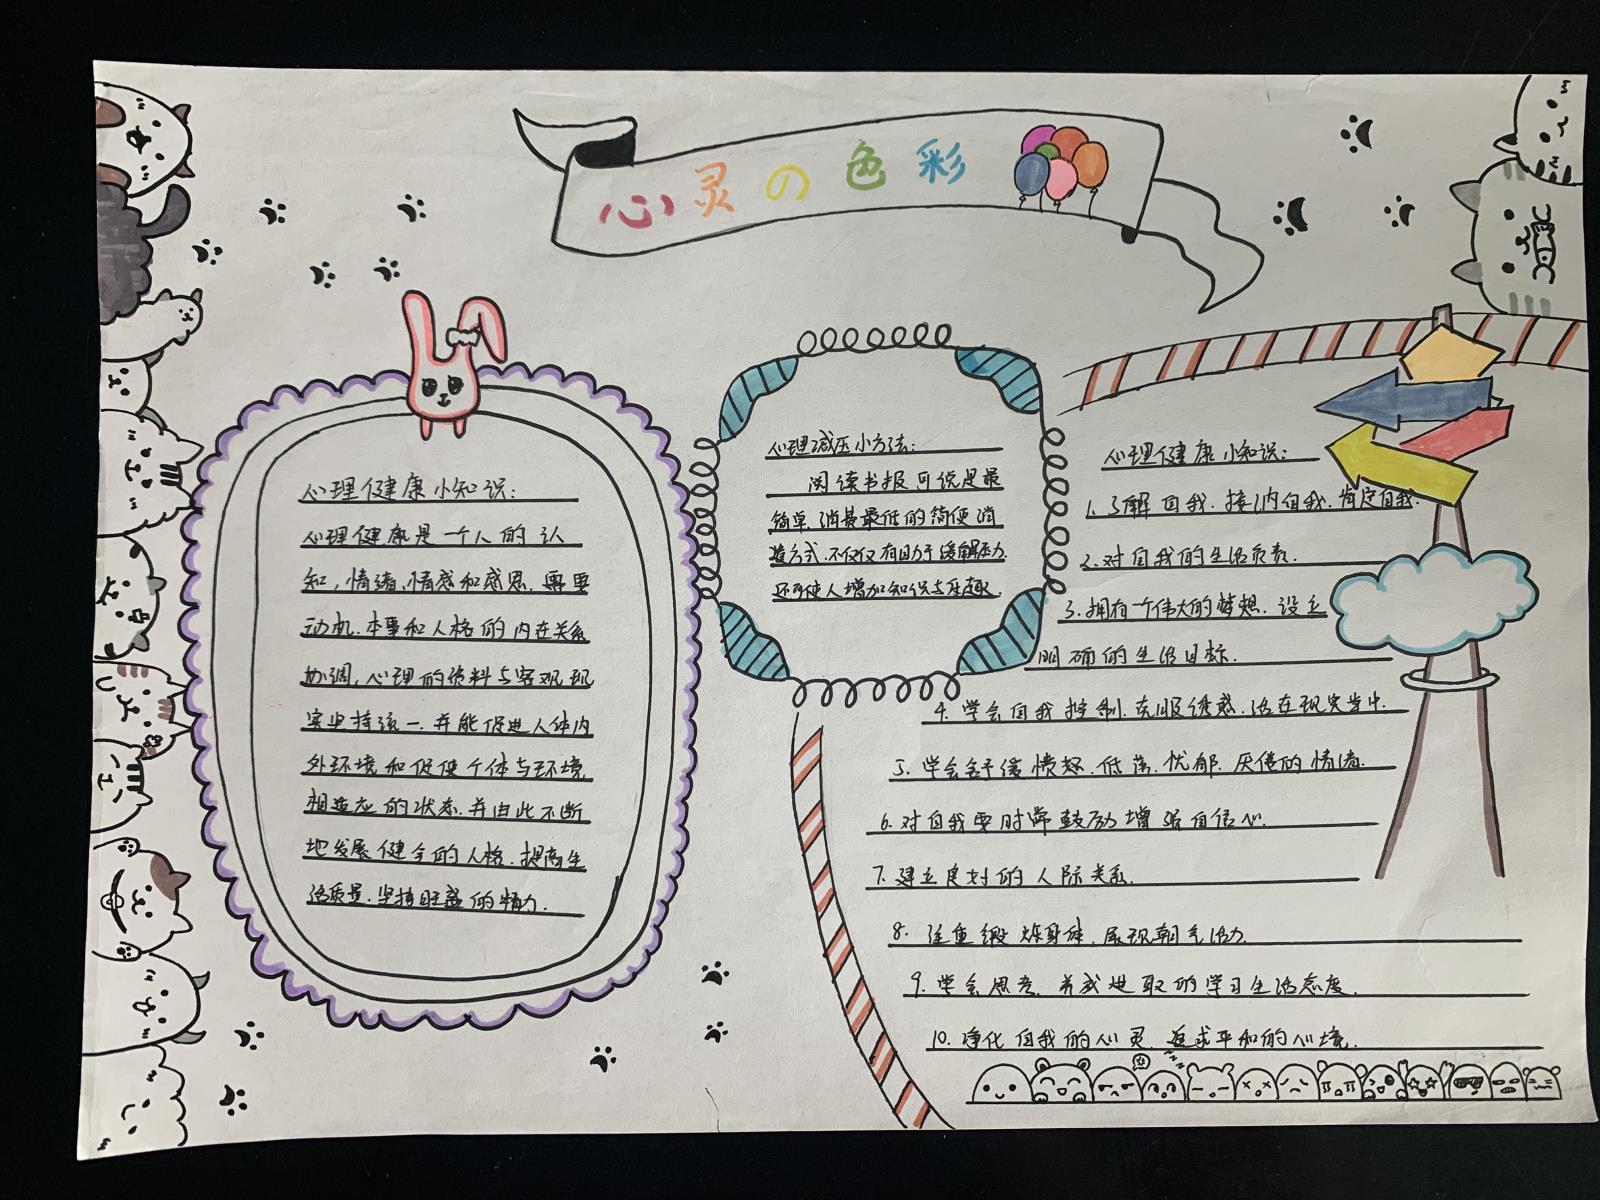 心灵の色彩
心理健康小知识:
心理健康是一个人的认
知,情绪、情感和感恩、需要
动机、本事和人格的内在关系
协调,心理的资料与客观现
实坚持统一.并能促进人体内
外环境和促使个体与环境
相适应的状态.并由此不断
地发展健全的人格.提高生
活质量.坚持旺盛的精力.
心理减压小方法:
阅读书报可说是最
简单.消费最低的简便消
遣方式.不仅仅有助于缓解压力.
还可使人增加知识与乐趣.
心理健康小知识:
1.了解自我.接纳自我.肯定自我.
2.对自我的生活负责.
3.拥有一个伟大的梦想.设立
明确的生活目标.
4.学会自我控制.克服诱惑.活在现实当中.
5.学会舒缓愤怒.低落.忧郁.厌倦的情绪.
6.对自我要时常鼓励增强自信心.
7.建立良好的人际关系.
8.注重锻炼身体.展现朝气活力.
9.学会思考.养成进取的学习生活态度.
10.净化自我的心灵.追求平和的心境.